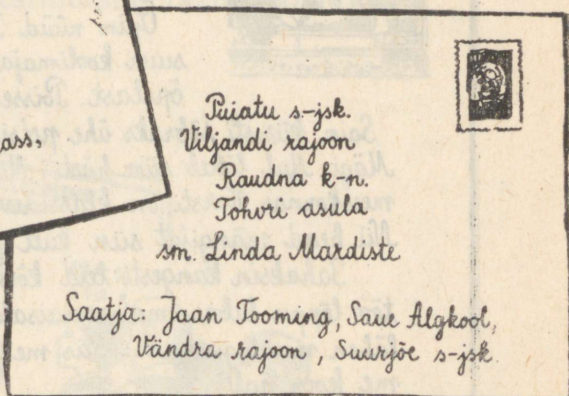 ass,
Puiatu s-jsk.
Viljandi rajoon
Raudna k-n.
Tohvri asula
sm. Linda Mardiste
Saatja: Jaan Tooming, Saue Algkool,
Vändra rajoon, Suurjõe s-jsk